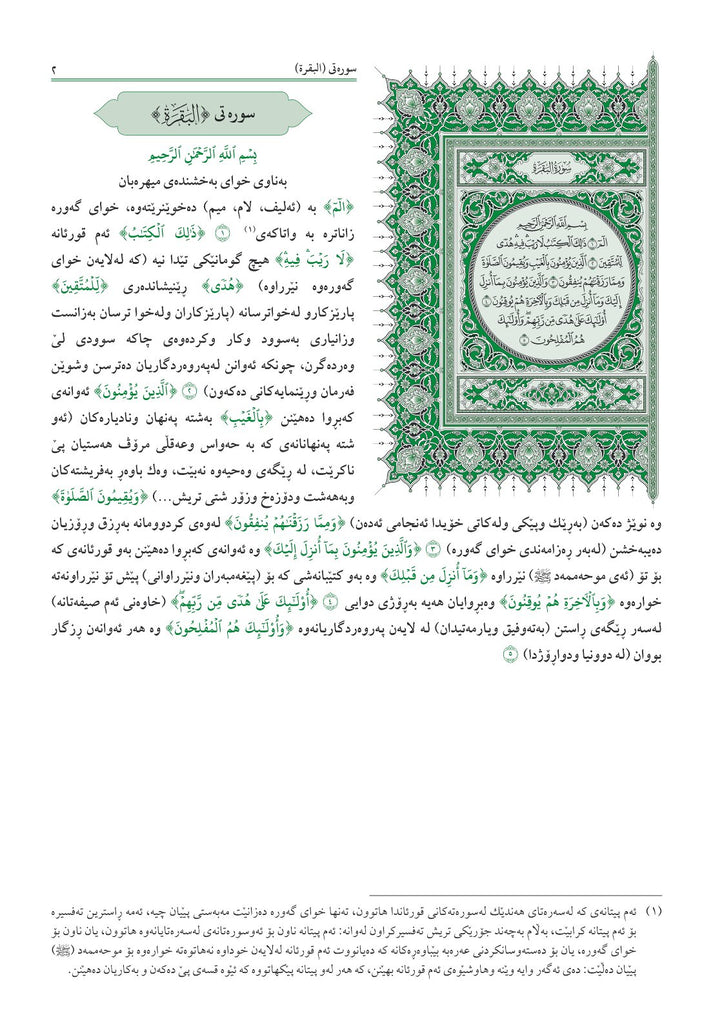 سورەتی (البقرة)
٢
سُورَةُ البَقَرَةِ
بِسْمِ ٱللَّهِ ٱلرَّحْمَٰنِ ٱلرَّحِيمِ
الٓمٓ ١ ذَٰلِكَ ٱلْكِتَٰبُ لَا رَيْبَ ۛ فِيهِ ۛ هُدًى
لِّلْمُتَّقِينَ ٢ ٱلَّذِينَ يُؤْمِنُونَ بِٱلْغَيْبِ وَيُقِيمُونَ ٱلصَّلَوٰةَ
وَمِمَّا رَزَقْنَٰهُمْ يُنفِقُونَ ٣ وَٱلَّذِينَ يُؤْمِنُونَ بِمَآ أُنزِلَ
إِلَيْكَ وَمَآ أُنزِلَ مِن قَبْلِكَ وَبِٱلْءَاخِرَةِ هُمْ يُوقِنُونَ ٤
أُو۟لَٰٓئِكَ عَلَىٰ هُدًى مِّن رَّبِّهِمْ ۖ وَأُو۟لَٰٓئِكَ
هُمُ ٱلْمُفْلِحُونَ ٥
سورەتی ﴿البَقَرَةِ﴾
بِسْمِ ٱللَّهِ ٱلرَّحْمَٰنِ ٱلرَّحِيمِ
بەناوی خوای بەخشندەی میهرەبان
﴿الٓمٓ﴾ بە (ئەلیف، لام، میم) دەخوێنرێتەوە، خوای گەورە
زاناترە بە واتاکەی(١) ١ ﴿ذَٰلِكَ ٱلْكِتَٰبُ﴾ ئەم قورئانە
﴿لَا رَيْبَ ۛ فِيهِ ۛ﴾ هیچ گومانێکی تێدا نیە (کە لەلایەن خوای
گەورەوە نێرراوە) ﴿هُدًى﴾ ڕێنیشاندەری ﴿لِّلْمُتَّقِينَ﴾
پارێزکارو لەخواترسانە (پارێزکاران ولەخوا ترسان بەزانست
وزانیاری بەسوود وکار وکردەوەی چاکە سوودی لێ
وەردەگرن، چونکە ئەوانن لەپەروەردگاریان دەترسن وشوێن
فەرمان وڕێنمایەکانی دەکەون) ٢ ﴿ٱلَّذِينَ يُؤْمِنُونَ﴾ ئەوانەی
کەبڕوا دەهێنن ﴿بِٱلْغَيْبِ﴾ بەشتە پەنهان ونادیارەکان (ئەو
شتە پەنهانانەی کە بە حەواس وعەقڵی مرۆڤ هەستیان پێ
ناکرێت، لە ڕێگەی وەحیەوە نەبێت، وەك باوەڕ بەفریشتەکان
وبەهەشت ودۆزەخ وزۆر شتی تریش...) ﴿وَيُقِيمُونَ ٱلصَّلَوٰةَ﴾
وە نوێژ دەکەن (بەڕێك وپێکی ولەکاتی خۆیدا ئەنجامی ئەدەن) ﴿وَمِمَّا رَزَقْنَٰهُمْ يُنفِقُونَ﴾ لەوەی کردوومانە بەڕزق وڕۆزیان
دەیبەخشن (لەبەر ڕەزامەندی خوای گەورە) ٣ ﴿وَٱلَّذِينَ يُؤْمِنُونَ بِمَآ أُنزِلَ إِلَيْكَ﴾ وە ئەوانەی کەبڕوا دەهێنن بەو قورئانەی کە
بۆ تۆ (ئەی موحەممەد ﷺ) نێرراوە ﴿وَمَآ أُنزِلَ مِن قَبْلِكَ﴾ وە بەو کتێبانەشی کە بۆ (پێغەمبەران ونێرراوانی) پێش تۆ نێرراونەتە
خوارەوە ﴿وَبِٱلْءَاخِرَةِ هُمْ يُوقِنُونَ﴾ وەبڕوایان هەیە بەڕۆژی دوایی ٤ ﴿أُو۟لَٰٓئِكَ عَلَىٰ هُدًى مِّن رَّبِّهِمْ ۖ﴾ (خاوەنی ئەم صیفەتانە)
لەسەر ڕێگەی ڕاستن (بەتەوفیق ویارمەتیدان) لە لایەن پەروەردگاریانەوە ﴿وَأُو۟لَٰٓئِكَ هُمُ ٱلْمُفْلِحُونَ﴾ وە هەر ئەوانەن ڕزگار
بووان (لە دوونیا ودواڕۆژدا) ٥
(١) ئەم پیتانەی کە لەسەرەتای هەندێك لەسورەتەکانی قورئاندا هاتوون، تەنها خوای گەورە دەزانێت مەبەستی پێیان چیە، ئەمە ڕاسترین تەفسیرە
بۆ ئەم پیتانە کرابێت، بەڵام بەچەند جۆرێکی تریش تەفسیرکراون لەوانە: ئەم پیتانە ناون بۆ ئەوسورەتانەی لەسەرەتایانەوە هاتوون، یان ناون بۆ
خوای گەورە، یان بۆ دەستەوسانکردنی عەرەبە بێباوەڕەکانە کە دەیانووت ئەم قورئانە لەلایەن خوداوە نەهاتوەتە خوارەوە بۆ موحەممەد (ﷺ)
پێیان دەڵێت: دەی ئەگەر وایە وێنە وهاوشێوەی ئەم قورئانە بهێنن، کە هەر لەو پیتانە پێکهاتووە کە ئێوە قسەی پێ دەکەن و بەکاریان دەهێنن.